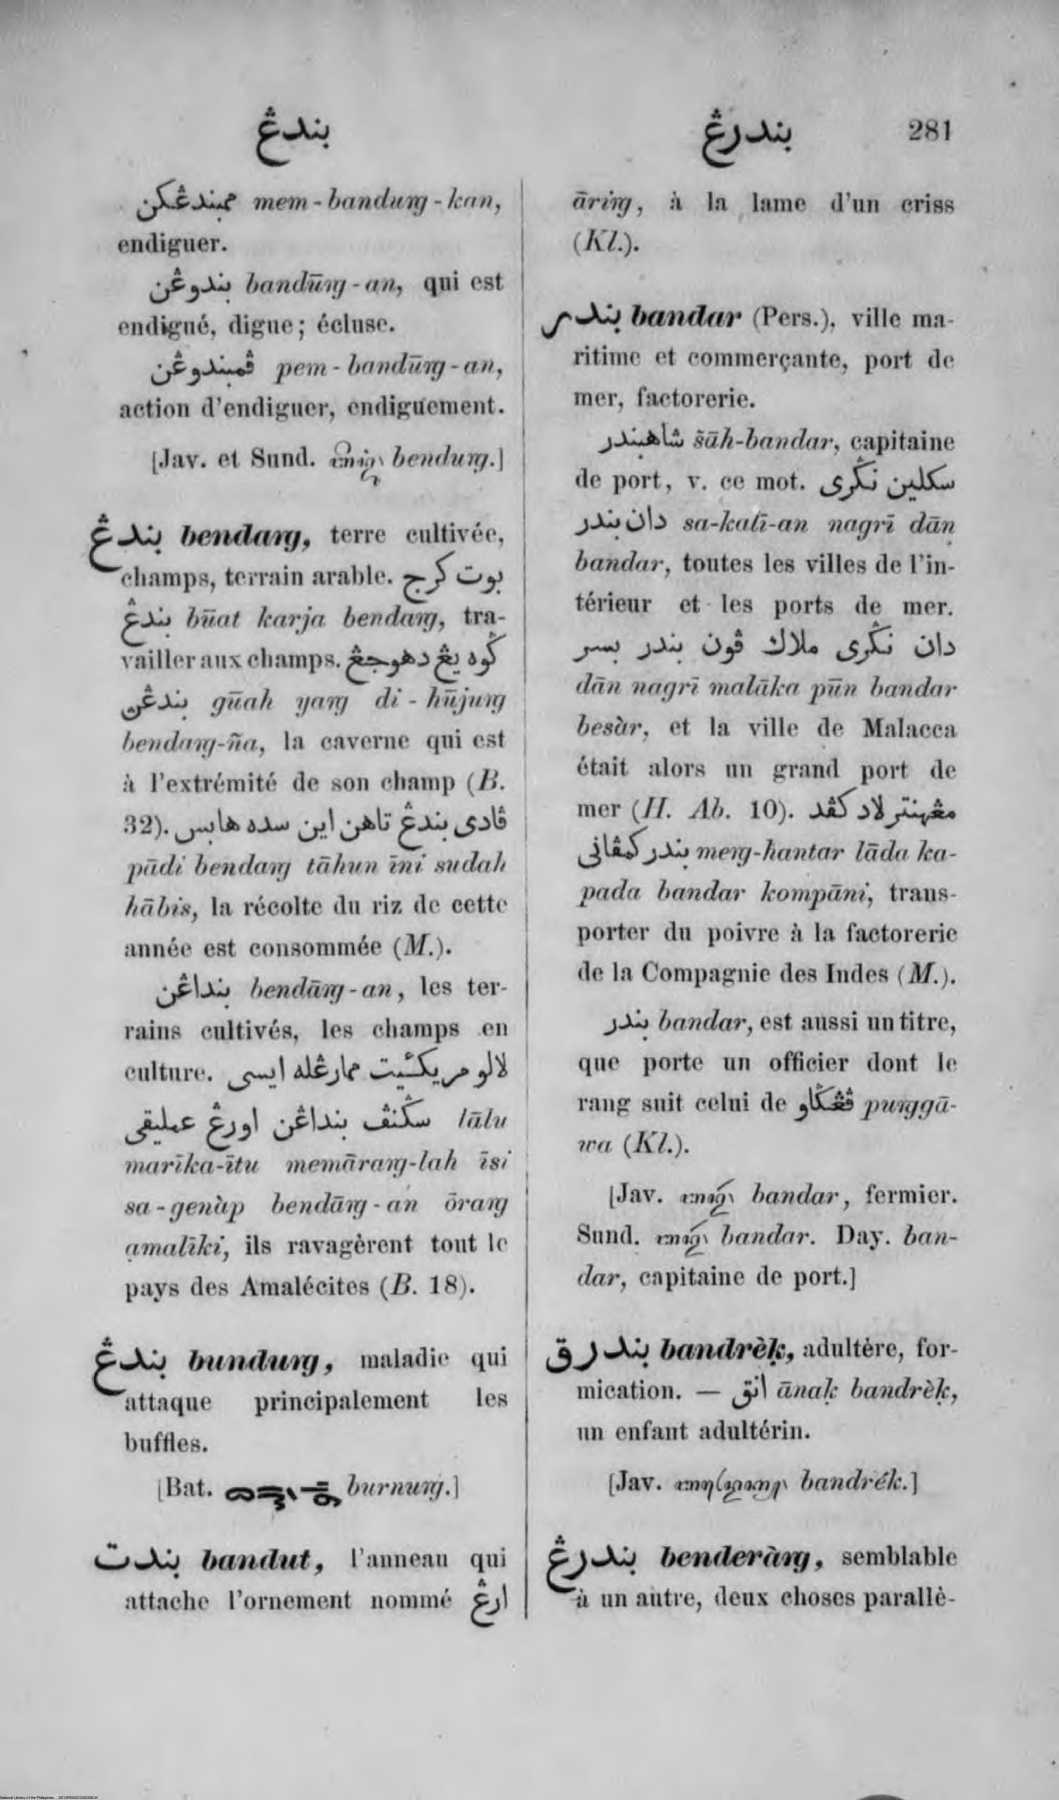 بندڠ
بندرڠ 281
ممبندڠكن mem-bandung-kan,
endiguer.
بندوڠن bandūng-an, qui est
endigué, digue; écluse.
ڤمبندوڠن pem-bandūng-an,
action d'endiguer, endiguement.
[Jav. et Sund. bendung.]
بندڠ bendang, terre cultivée,
champs, terrain arable. بوت كرج
بندڠ būat karja bendang, tra-
vailler aux champs. ݢوه يڠ دهوجڠ
بندڠن gūah yang di-hūjung
bendang-ña, la caverne qui est
à l'extrémité de son champ (B.
32). ڤادى بندڠ تاهن اين سده هابس
pādi bendang tāhun īni sudah
hābis, la récolte du riz de cette
année est consommée (M.).
بنداڠن bendāng-an, les ter-
rains cultivés, les champs en
culture. لالو مريكئيت ممارڠله ايسى
سݢنڤ بنداڠن اورڠ عمليقى lālu
marīka-ītu memārang-lah īsi
sa-genàp bendāng-an ōrang
amalīki, ils ravagèrent tout le
pays des Amalécites (B. 18).
بندڠ bundung, maladie qui
attaque principalement les
buffles.
[Bat. burnung.]
بندت bandut, l'anneau qui
attache l'ornement nommé ارڠ
āring, à la lame d'un criss
(Kl.).
بندر bandar (Pers.), ville ma-
ritime et commerçante, port de
mer, factorerie.
شاهبندر šāh-bandar, capitaine
de port, v. ce mot. سكلين نݢرى
دان بندر sa-kalī-an nagrī dān
bandar, toutes les villes de l'in-
térieur et les ports de mer.
دان نݢرى ملاك ڤون بندر بسر
dān nagrī malāka pūn bandar
besàr, et la ville de Malacca
était alors un grand port de
mer (H. Ab. 10). مڠهنتر لاد كڤد
بندر كمڤانى meng-hantar lāda ka-
pada bandar kompāni, trans-
porter du poivre à la factorerie
de la Compagnie des Indes (M.).
بندر bandar, est aussi un titre,
que porte un officier dont le
rang suit celui de ڤڠݢاو punggā-
wa (Kl.).
[Jav. bandar, fermier.
Sund. bandar. Day. ban-
dar, capitaine de port.]
بندرق bandrèḳ, adultère, for-
mication. — انق ānaḳ bandrèḳ,
un enfant adultérin.
[Jav. bandrék.]
بندرڠ benderàng, semblable
à un autre, deux choses parallè-